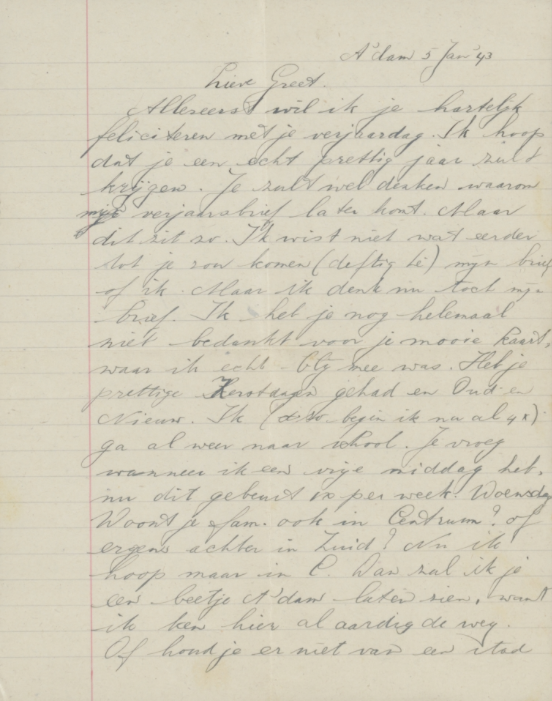 A'dam 5 Jan '43
Lieve Greet.
Allereerst wil ik je hartelijk
feliciteren met je verjaardag. Ik hoop
dat je een echt prettig jaar zult
krijgen. Je zult wel denken waarom
mijn verjaarsbrief later komt. Maar
dit zit zo. Ik wist niet wat eerder
tot je zou komen (deftig hè) mijn brief
of ik. Maar ik denk nu toch mijn
brief. Ik heb je nog helemaal
niet bedankt voor je mooie kaart,
waar ik echt blij mee was. Heb je
prettige Kerstdagen gehad en Oud en
Nieuw. Ik (zo begin ik nu al 4 x)
ga al weer naar school. Je vroeg
wanneer ik een vrije middag heb,
nu dit gebeurt 1x per week. Woensdag
Woont je fam. ook in Centrum? of
ergens achter in Zuid? Nu ik
hoop maar in C. Dan zal ik je
een beetje A'dam laten zien, want
ik ken hier al aardig de weg.
Of houd je er niet van een stad